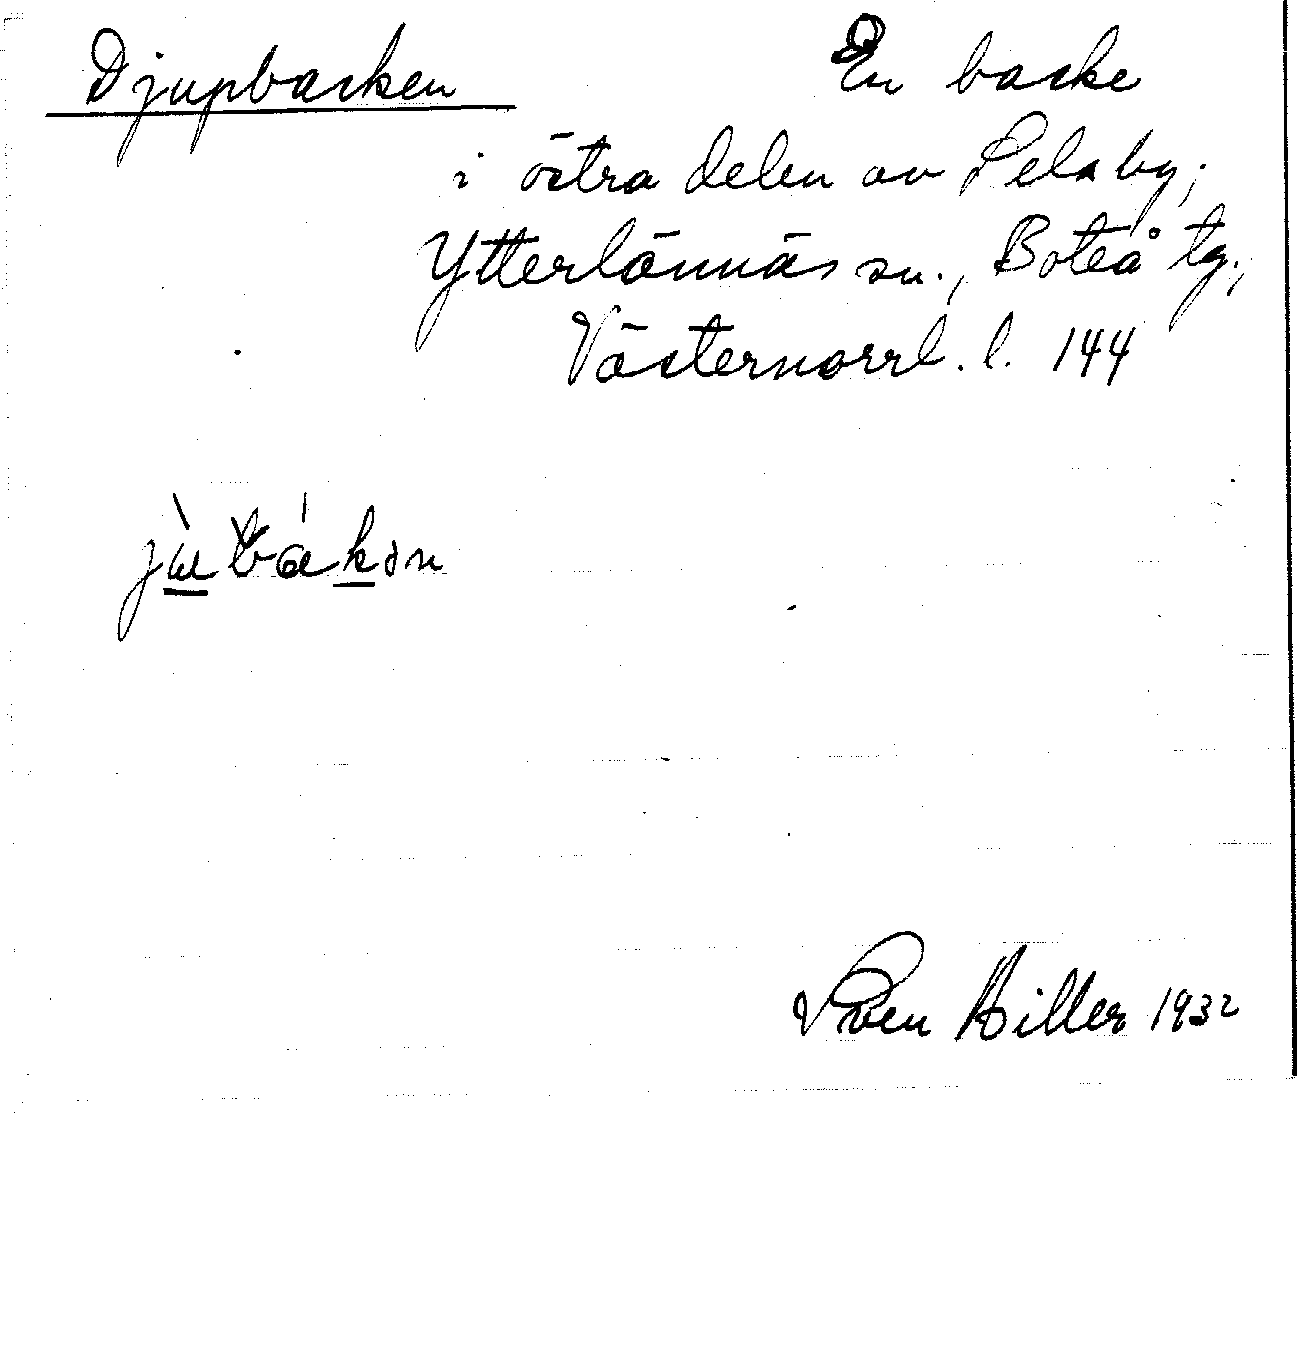 Djupbacken En backe
i östra delen av by,
Ytterlännäs sn., Boteå tg.,
Västernorrl. l. 144
Sven Hiller 1932